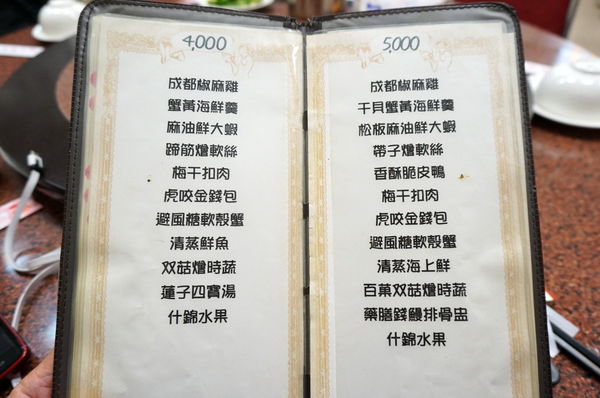 4,000
成都椒麻雞
蟹黃海鮮羹
麻油鮮大蝦
蹄筋燴軟絲
梅干扣肉
虎咬金錢包
避風糖軟殼蟹
清蒸鮮魚
双菇燴時蔬
蓮子四寶湯
什錦水果
5,000
成都椒麻雞
干貝蟹黃海鮮羹
松板麻油鮮大蝦
帶子燴軟絲
香酥脆皮鴨
梅干扣肉
虎咬金錢包
避風糖軟殼蟹
清蒸海上鮮
百萬双菇燴時蔬
藥膳錢鰻排骨盅
什錦水果